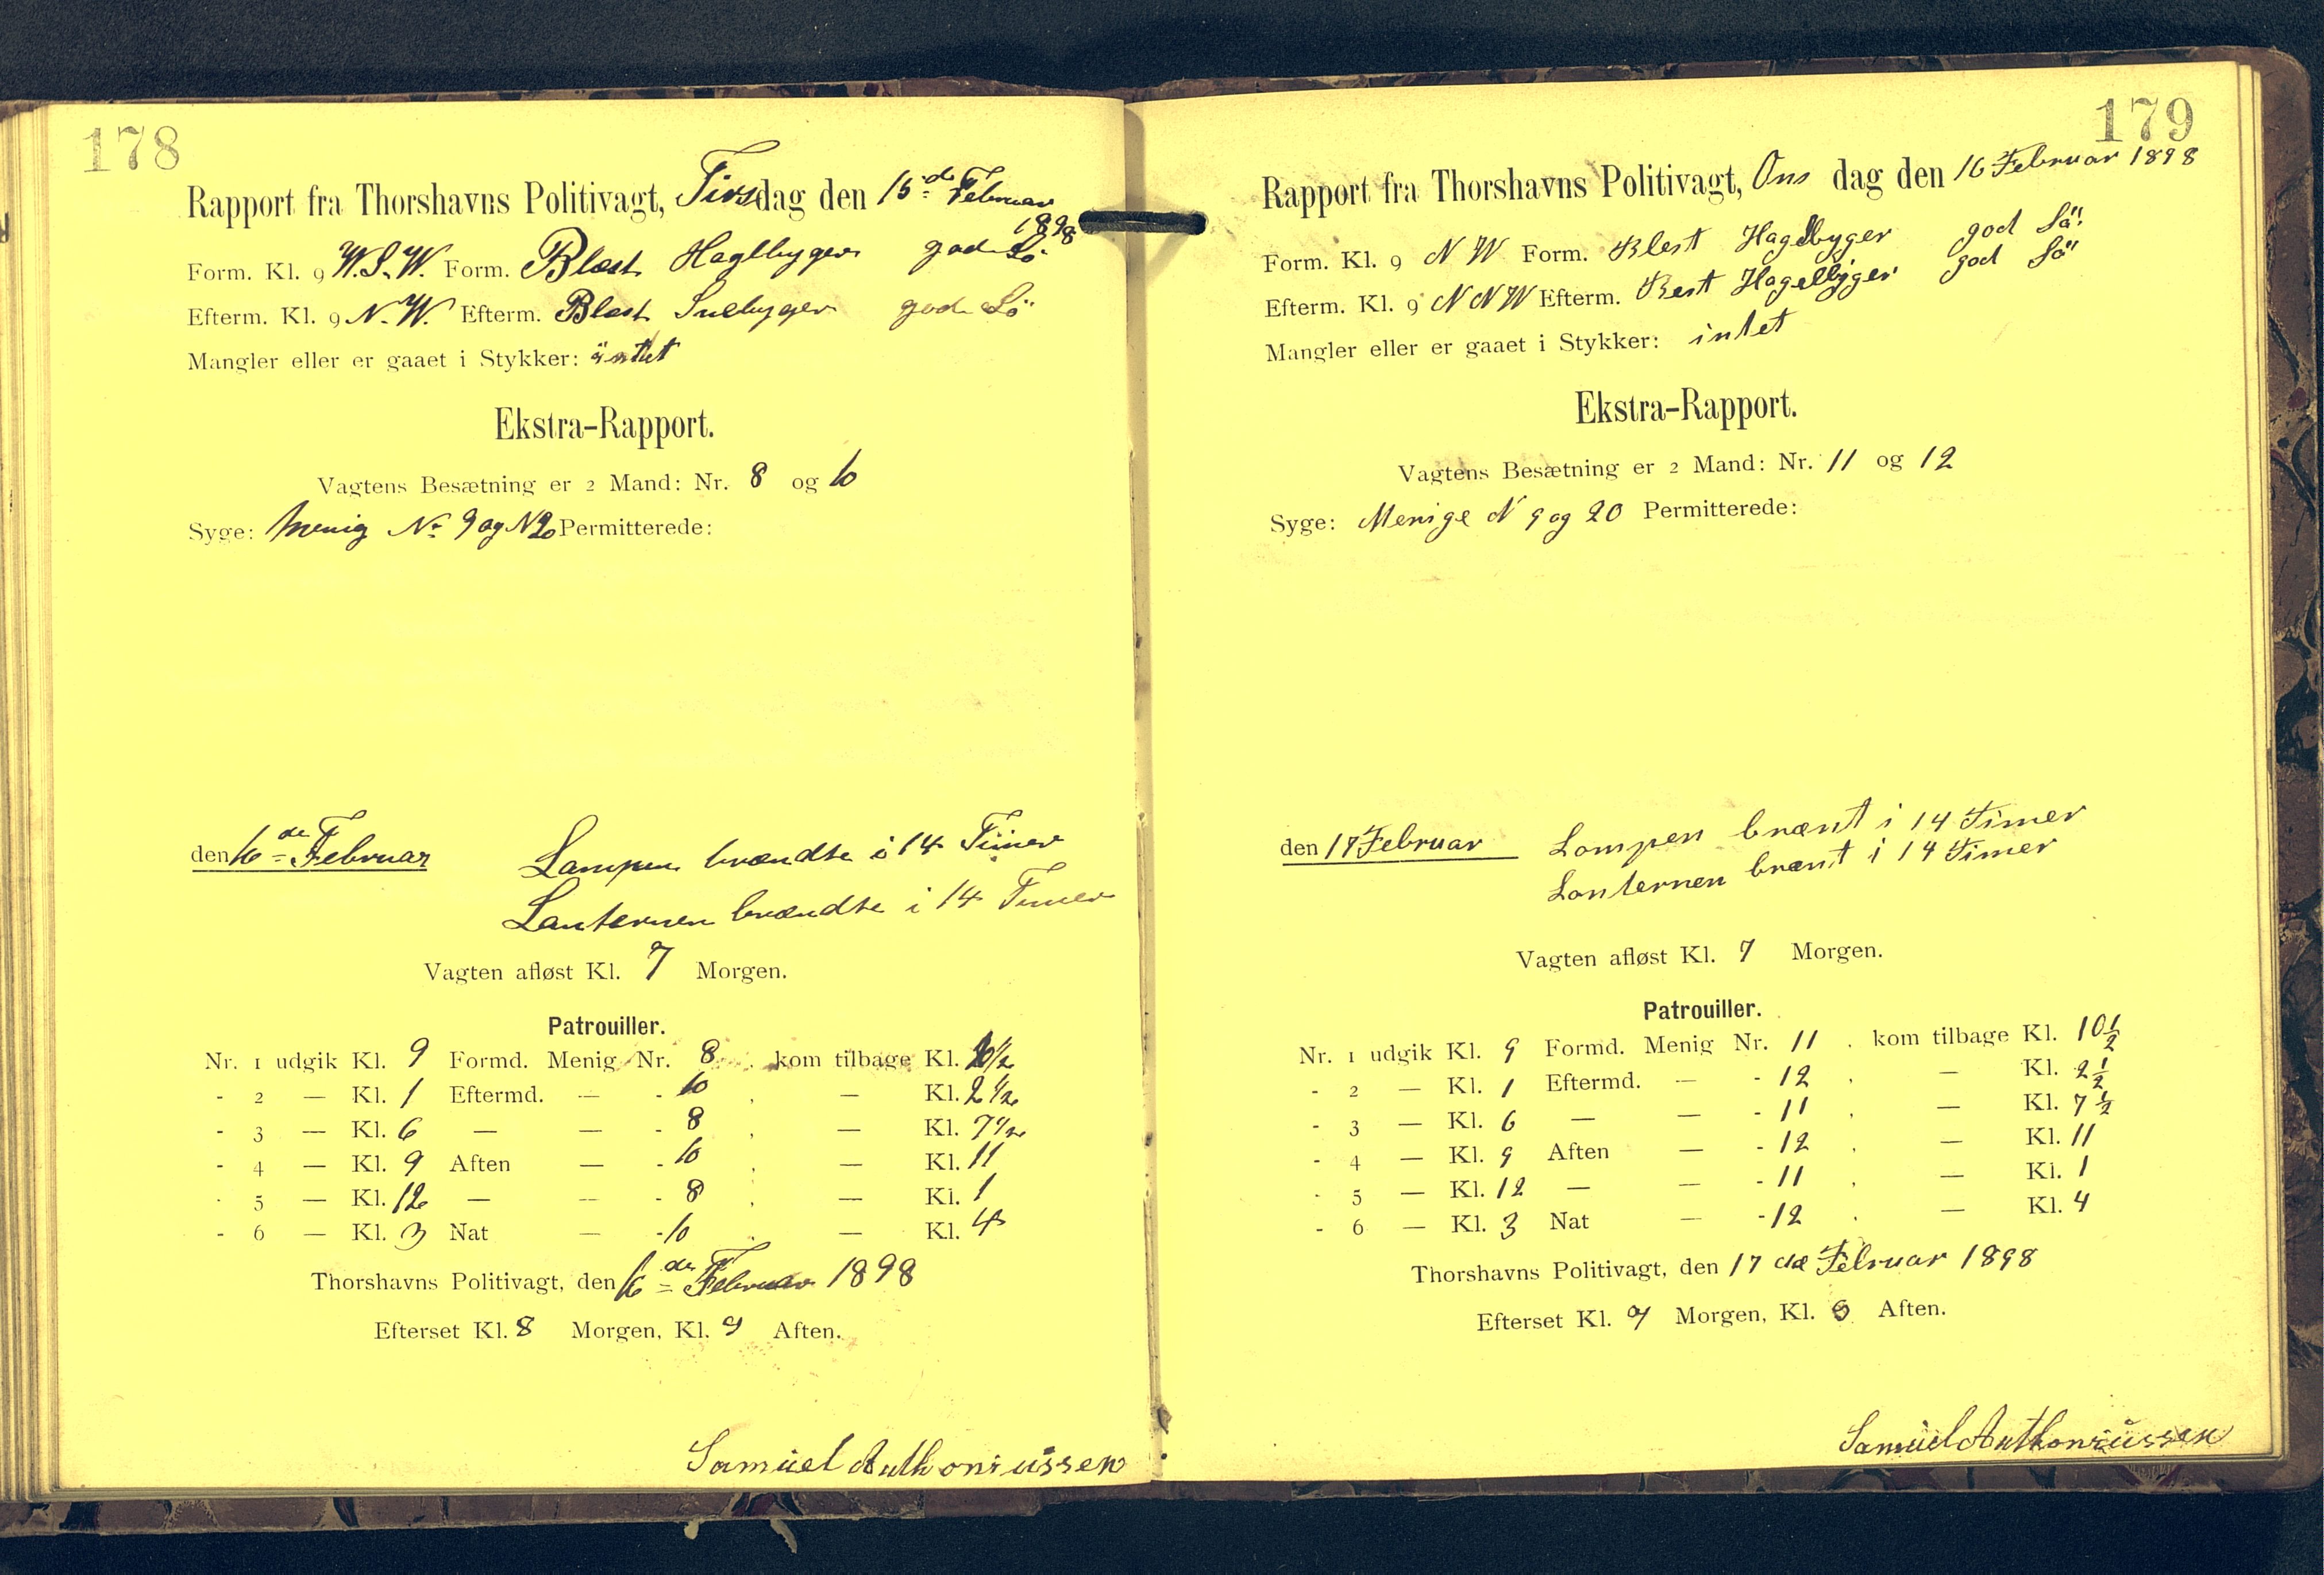 178
Rapport fra Thorshavns Politivagt, Tirsdag den 15de Februar
1898
Form. Kl. 9 W.S.W. Form. Blæst Haglbyger god Sö
Efterm. Kl. 9 N.W. Efterm. Blæst Snebyger god Sö
Mangler eller er gaaet i Stykker: intet
Ekstra-Rapport.
Vagtens Besætning er 2 Mand: Nr. 8 og 10
Syge: Menig Nr 9 og N 20 Permitterede:
den 16de Februar Lampen brændte i 14 Timer
Lanternen brændte i 14 Timer
Vagten afløst Kl. 7 Morgen.
Patrouiller.
Nr. 1 udgik Kl. 9 Formd. Menig Nr. 8 . kom tilbage Kl. 10 1/2
- 2 — Kl. 1 Eftermd. — - 10 . — Kl. 2 1/2
- 3 — Kl. 6 — — - 8 . — Kl. 7 1/2
- 4 — Kl. 9 Aften — - 10 . — Kl. 11
- 5 — Kl. 12 — — - 8 . — Kl. 1
- 6 — Kl. 3 Nat — - 10 . — Kl. 4
Thorshavns Politivagt, den 16de Februar 1898
Efterset Kl. 8 Morgen, Kl. 9 Aften.
Samuel Anthoniussen
179
Rapport fra Thorshavns Politivagt, Ons dag den 16 Februar 1898
Form. Kl. 9 N W Form. Blest Hagelbyger god Sö
Efterm. Kl. 9 N N W Efterm. Best Hagelbyger god Sö
Mangler eller er gaaet i Stykker: intet
Ekstra-Rapport.
Vagtens Besætning er 2 Mand: Nr. 11 og 12
Syge: Menige N 9 og 20 Permitterede:
den 17 Februar Lampen brænt i 14 Timer
Lanternen brænt i 14 Timer
Vagten afløst Kl. 7 Morgen.
Patrouiller.
Nr. 1 udgik Kl. 9 Formd. Menig Nr. 11 . kom tilbage Kl. 10 1/2
- 2 — Kl. 1 Eftermd. — - 12 . — Kl. 2 1/2
- 3 — Kl. 6 — — - 11 . — Kl. 7 1/2
- 4 — Kl. 9 Aften — - 12 . — Kl. 11
- 5 — Kl. 12 — — - 11 . — Kl. 1
- 6 — Kl. 3 Nat — - 12 . — Kl. 4
Thorshavns Politivagt, den 17 de Februar 1898
Efterset Kl. 9 Morgen, Kl. Aften.
Samuel Anthoniussen